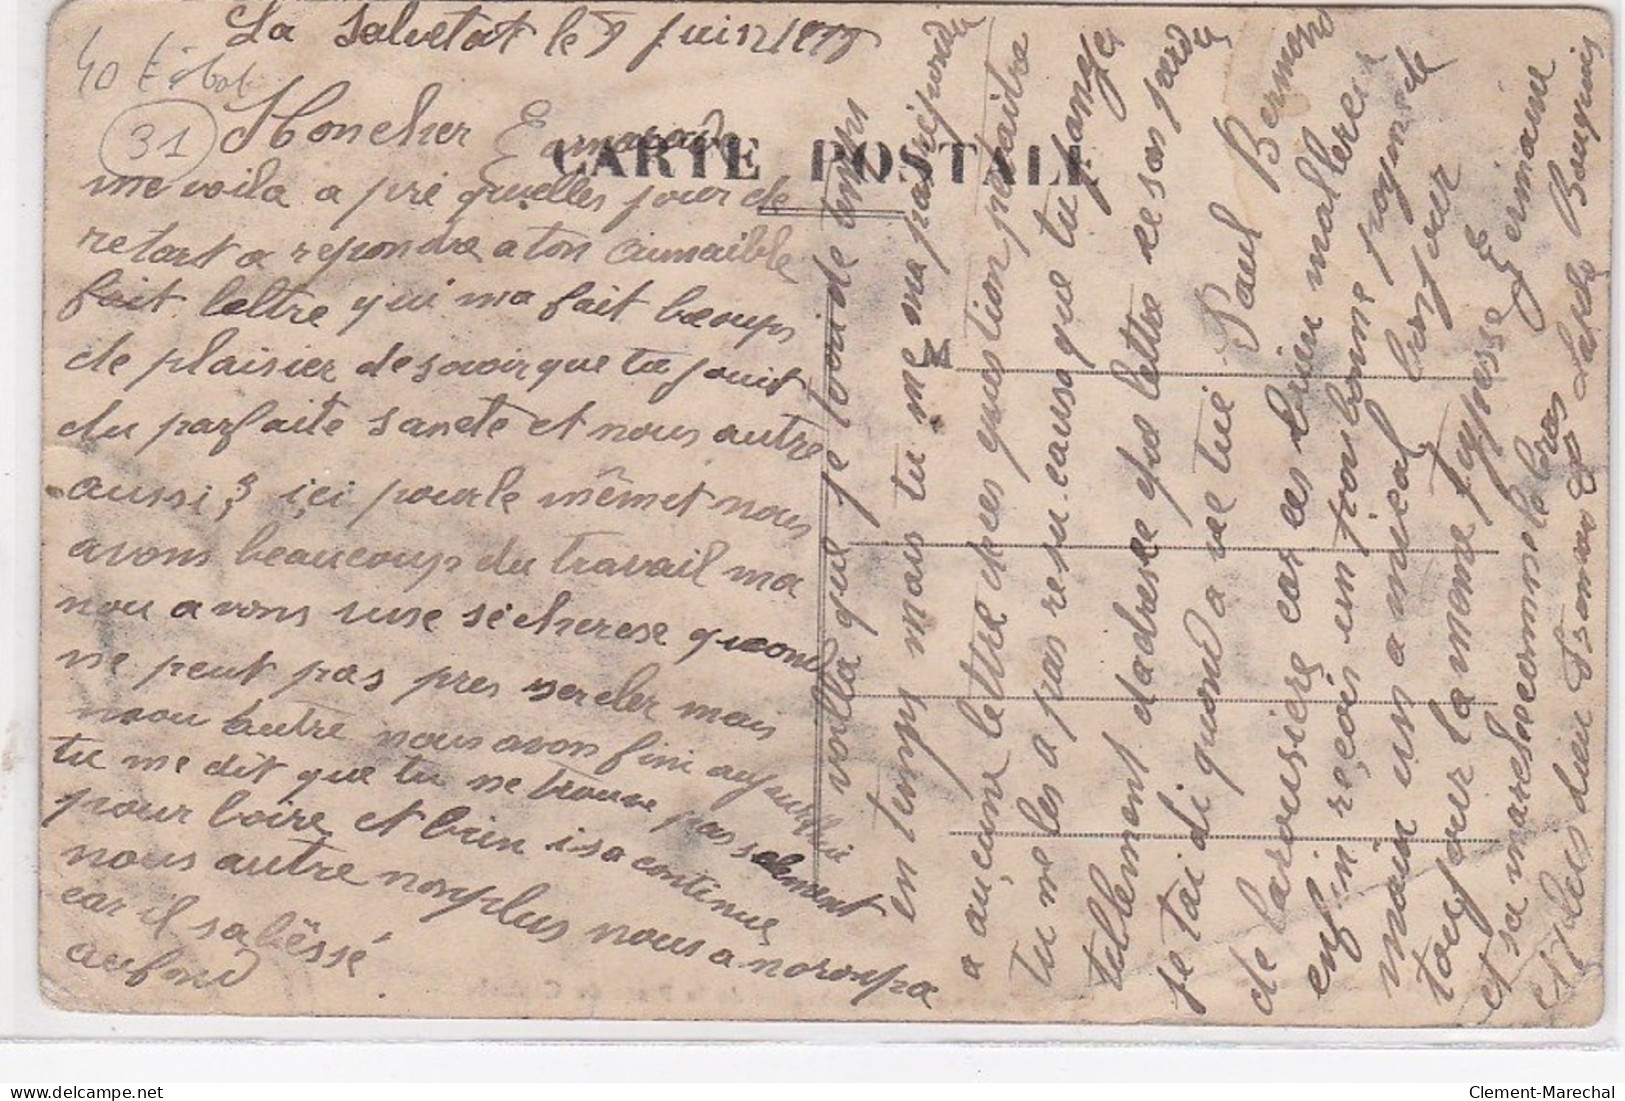 La Salvetat le 9 juin 19
40
31
Mon cher
CARTE POSTALE
me voila a pré quelles jour de
retart a repondre a ton aimaible
fait lettre qui ma fait beoups
de plaisier de savoir que tu jouit
du parfaite sancte et nous autre
aussi, içi pour le mêmet nous
avons beaucoup du travail ma
nou avons une sécherese quond
ne peut pas pres sercler mais
nou autre nous avon fini aujourdhui
tu me dit que tu ne trouve pas salement
pour boire et bien isa contenue
nous autre nonplus nous a noronpa
car il sabëssé
aufond
M
voilla que je toude temps
en temps mais tu me ma pas répondu
a aucune lettre ches question peraitre
tu me les a pas resu causo que tu change
tellement dadresse qua lettre ce sas perdu
je tai di quond a ue tué Paul Bermond
de la rousière car ces bien mallereux
enfin reçois un trou bonne poyni de
main un amical bonjour
toujour la meme
et sa mares comme le bras
et plus dieu
Germaine
Bouquis